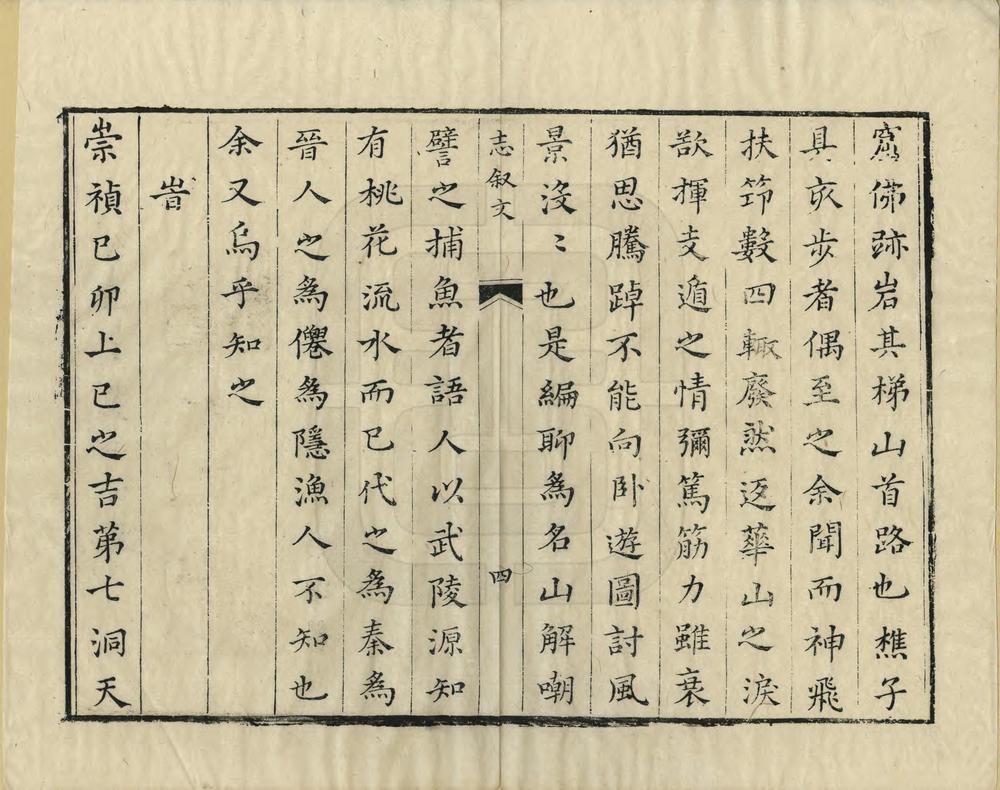 窟佛跡岩其梯山首路也樵子
具亥步者偶至之余聞而神飛
扶笻數四輒廢然返華山之淚
欲揮支遁之情彌篤筋力雖衰
猶思騰踔不能向卧遊圖討風
景沒〻也是編聊為名山解嘲
志叙文
四
譬之捕魚者語人以武陵源知
有桃花流水而已代之為秦為
晉人之為僊為隱漁人不知也
余又烏乎知之
旹
崇禎已卯上已之吉苐七洞天